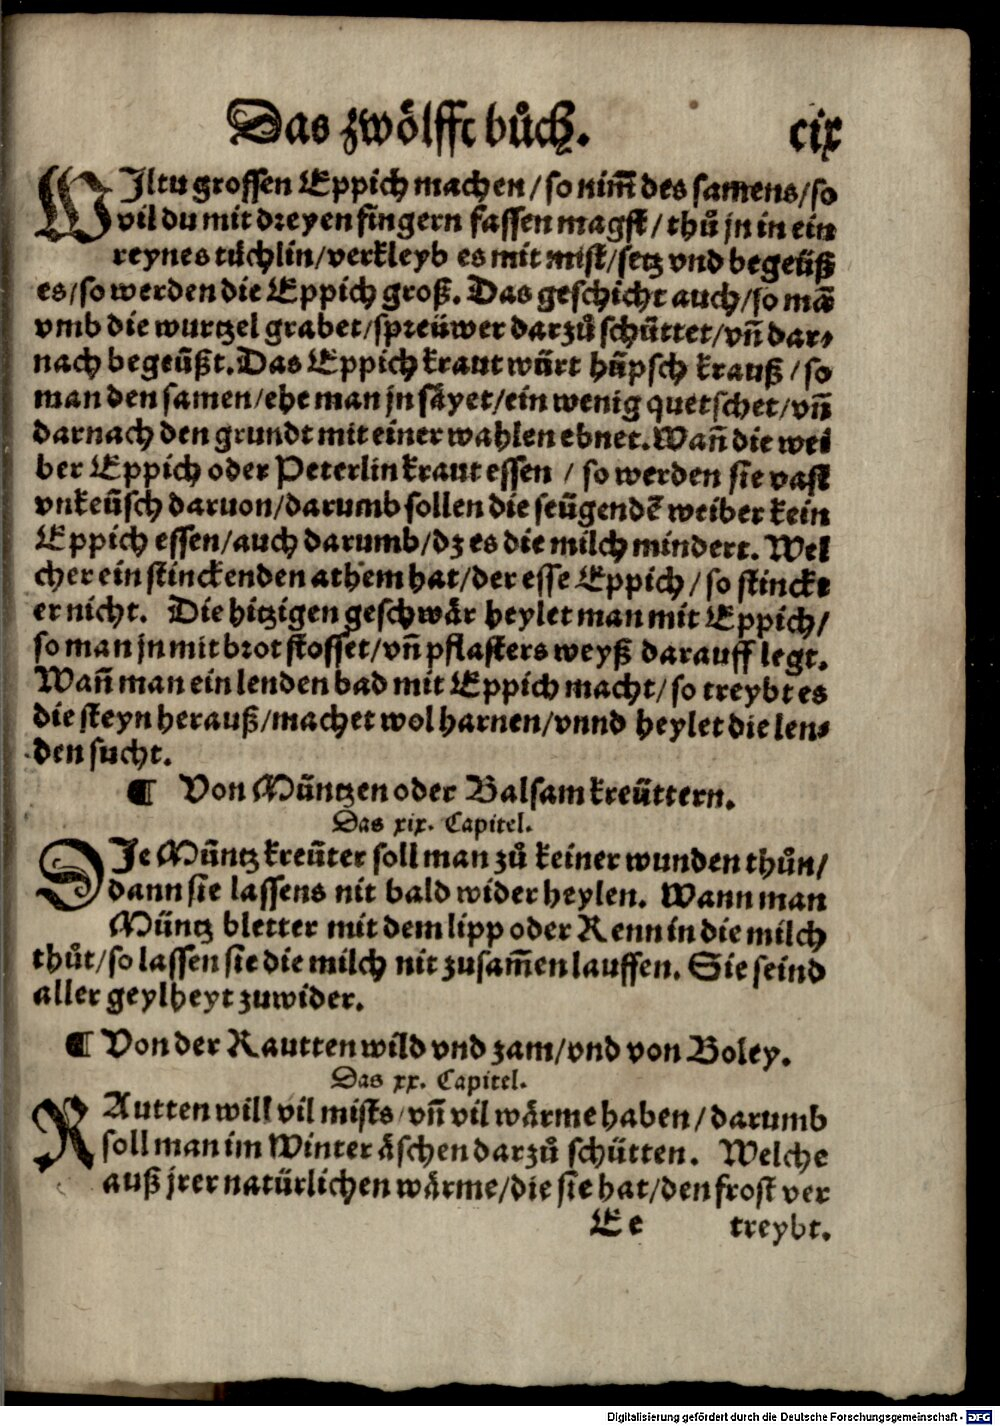 Das zwölfft bůch. cix
WJltu grossen Eppich machen/so nim̃ des samens/so
vil du mit dreyen fingern fassen magst/thů jn in ein
reynes tüchlin/verkleyb es mit mist/setz vnd begeüß
es/so werden die Eppich groß. Das geschicht auch/so mã
vmb die wurtzel grabet/spreüwer darzů schüttet/vñ dar⸗
nach begeüßt. Das Eppich kraut würt hüpsch krauß/so
man den samen/ehe man jn säyet/ein wenig quetschet/vñ
darnach den grundt mit einer wahlen ebnet. Wañ die wei
ber Eppich oder Peterlin kraut essen/so werden sie vast
vnkeüsch daruon/darumb sollen die seügendẽ weiber kein
Eppich essen/auch darumb/dz es die milch mindert. Wel
cher ein stinckenden athem hat/der esse Eppich/so stinckt
er nicht. Die hitzigen geschwär heylet man mit Eppich/
so man jn mit brot stosset/vñ pflasters weyß darauff legt.
Wañ man ein lenden bad mit Eppich macht/so treybt es
die steyn herauß/machet wol harnen/vnnd heylet die len⸗
den sucht.
¶ Von Müntzen oder Balsamkreüttern.
Das xix. Capitel.
DJe Müntzkreüter soll man zů keiner wunden thůn/
dann sie lassens nit bald wider heylen. Wann man
Müntz bletter mit dem lipp oder Renn in die milch
thůt/so lassen sie die milch nit zusam̃en lauffen. Sie seind
aller geylheyt zuwider.
¶ Von der Rautten wild vnd zam/vnd von Boley.
Das xx. Capitel.
RAutten will vil mists/vñ vil wärme haben/darumb
soll man im Winter äschen darzů schütten. Welche
auß jrer natürlichen wärme/die sie hat/den frost ver
Ee treybt.
Digitalisierung gefördert durch die Deutsche Forschungsgemeinschaft - DFG